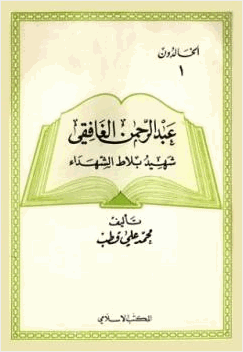 الخالدون
١
عبد الرحمن الغافقي
شهيد بلاط الشهداء
تأليف
محمد علي قطب
المكتب الإسلامي